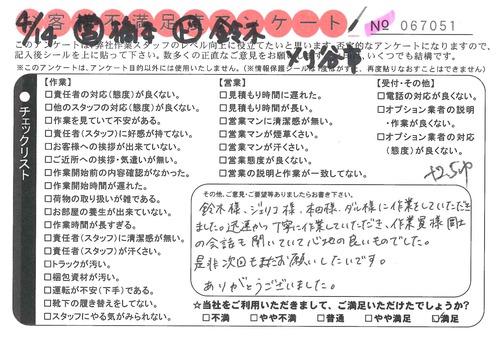 お客様不満足度アンケート！
4/14 営 橋本 作 鈴木
№ 067051
このアンケートは、弊社作業スタッフのレベル向上に役立てたいと思います。否定的なアンケートになりますので、
記入後シールを上に貼って下さい。数多くの正直なご意見をお願い いくつでも結構です。
※このアンケートは、アンケート目的以外には使用いたしません。(※情報保護シールは、
再度貼りなおすことはできません)
チェックリスト
【作業】
□責任者の対応(態度)が良くない。
□他のスタッフの対応(態度)が良くない。
□作業を見ていて不安がある。
□責任者(スタッフ)に好感が持てない。
□お客様への挨拶が出来ていない。
□ご近所への挨拶・気遣いが無い。
□作業開始前の内容確認がなかった。
□作業開始時間が遅れた。
□荷物の取り扱いが雑である。
□お部屋の養生が出来ていない。
□作業時間が長すぎる。
□責任者(スタッフ)に清潔感が無い。
□責任者(スタッフ)が汗くさい。
□トラックが汚い。
□梱包資材が汚い。
□運転が不安(下手)である。
□靴下の履き替えをしてない。
□スタッフにやる気がみられない。
【営業】
□見積もり時間に遅れた。
□見積もり時間が長い。
□営業マンに清潔感が無い。
□営業マンが煙草くさい。
□営業マンが汗くさい。
□営業態度が良くない。
□営業の説明と作業が一致してない。
【受付・その他】
□電話の対応が良くない。
□オプション業者の説明
・作業が良くない。
□オプション業者の対応
(態度)が良くない。
+2.5up
その他、ご意見・ご要望等ありましたらお書き下さい。
鈴木様、ジェリコ様、本田様、ダル様に作業していただき
ました。迅速かつ丁寧に作業していただき、作業員様同士
の会話も聞いていて心地の良いものでした。
是非次回もまたお願いしたいです。
ありがとうございました。
☆当社をご利用いただきまして、ご満足いただけたでしょうか？
□不満 □やや不満 □普通 □やや満足 □満足